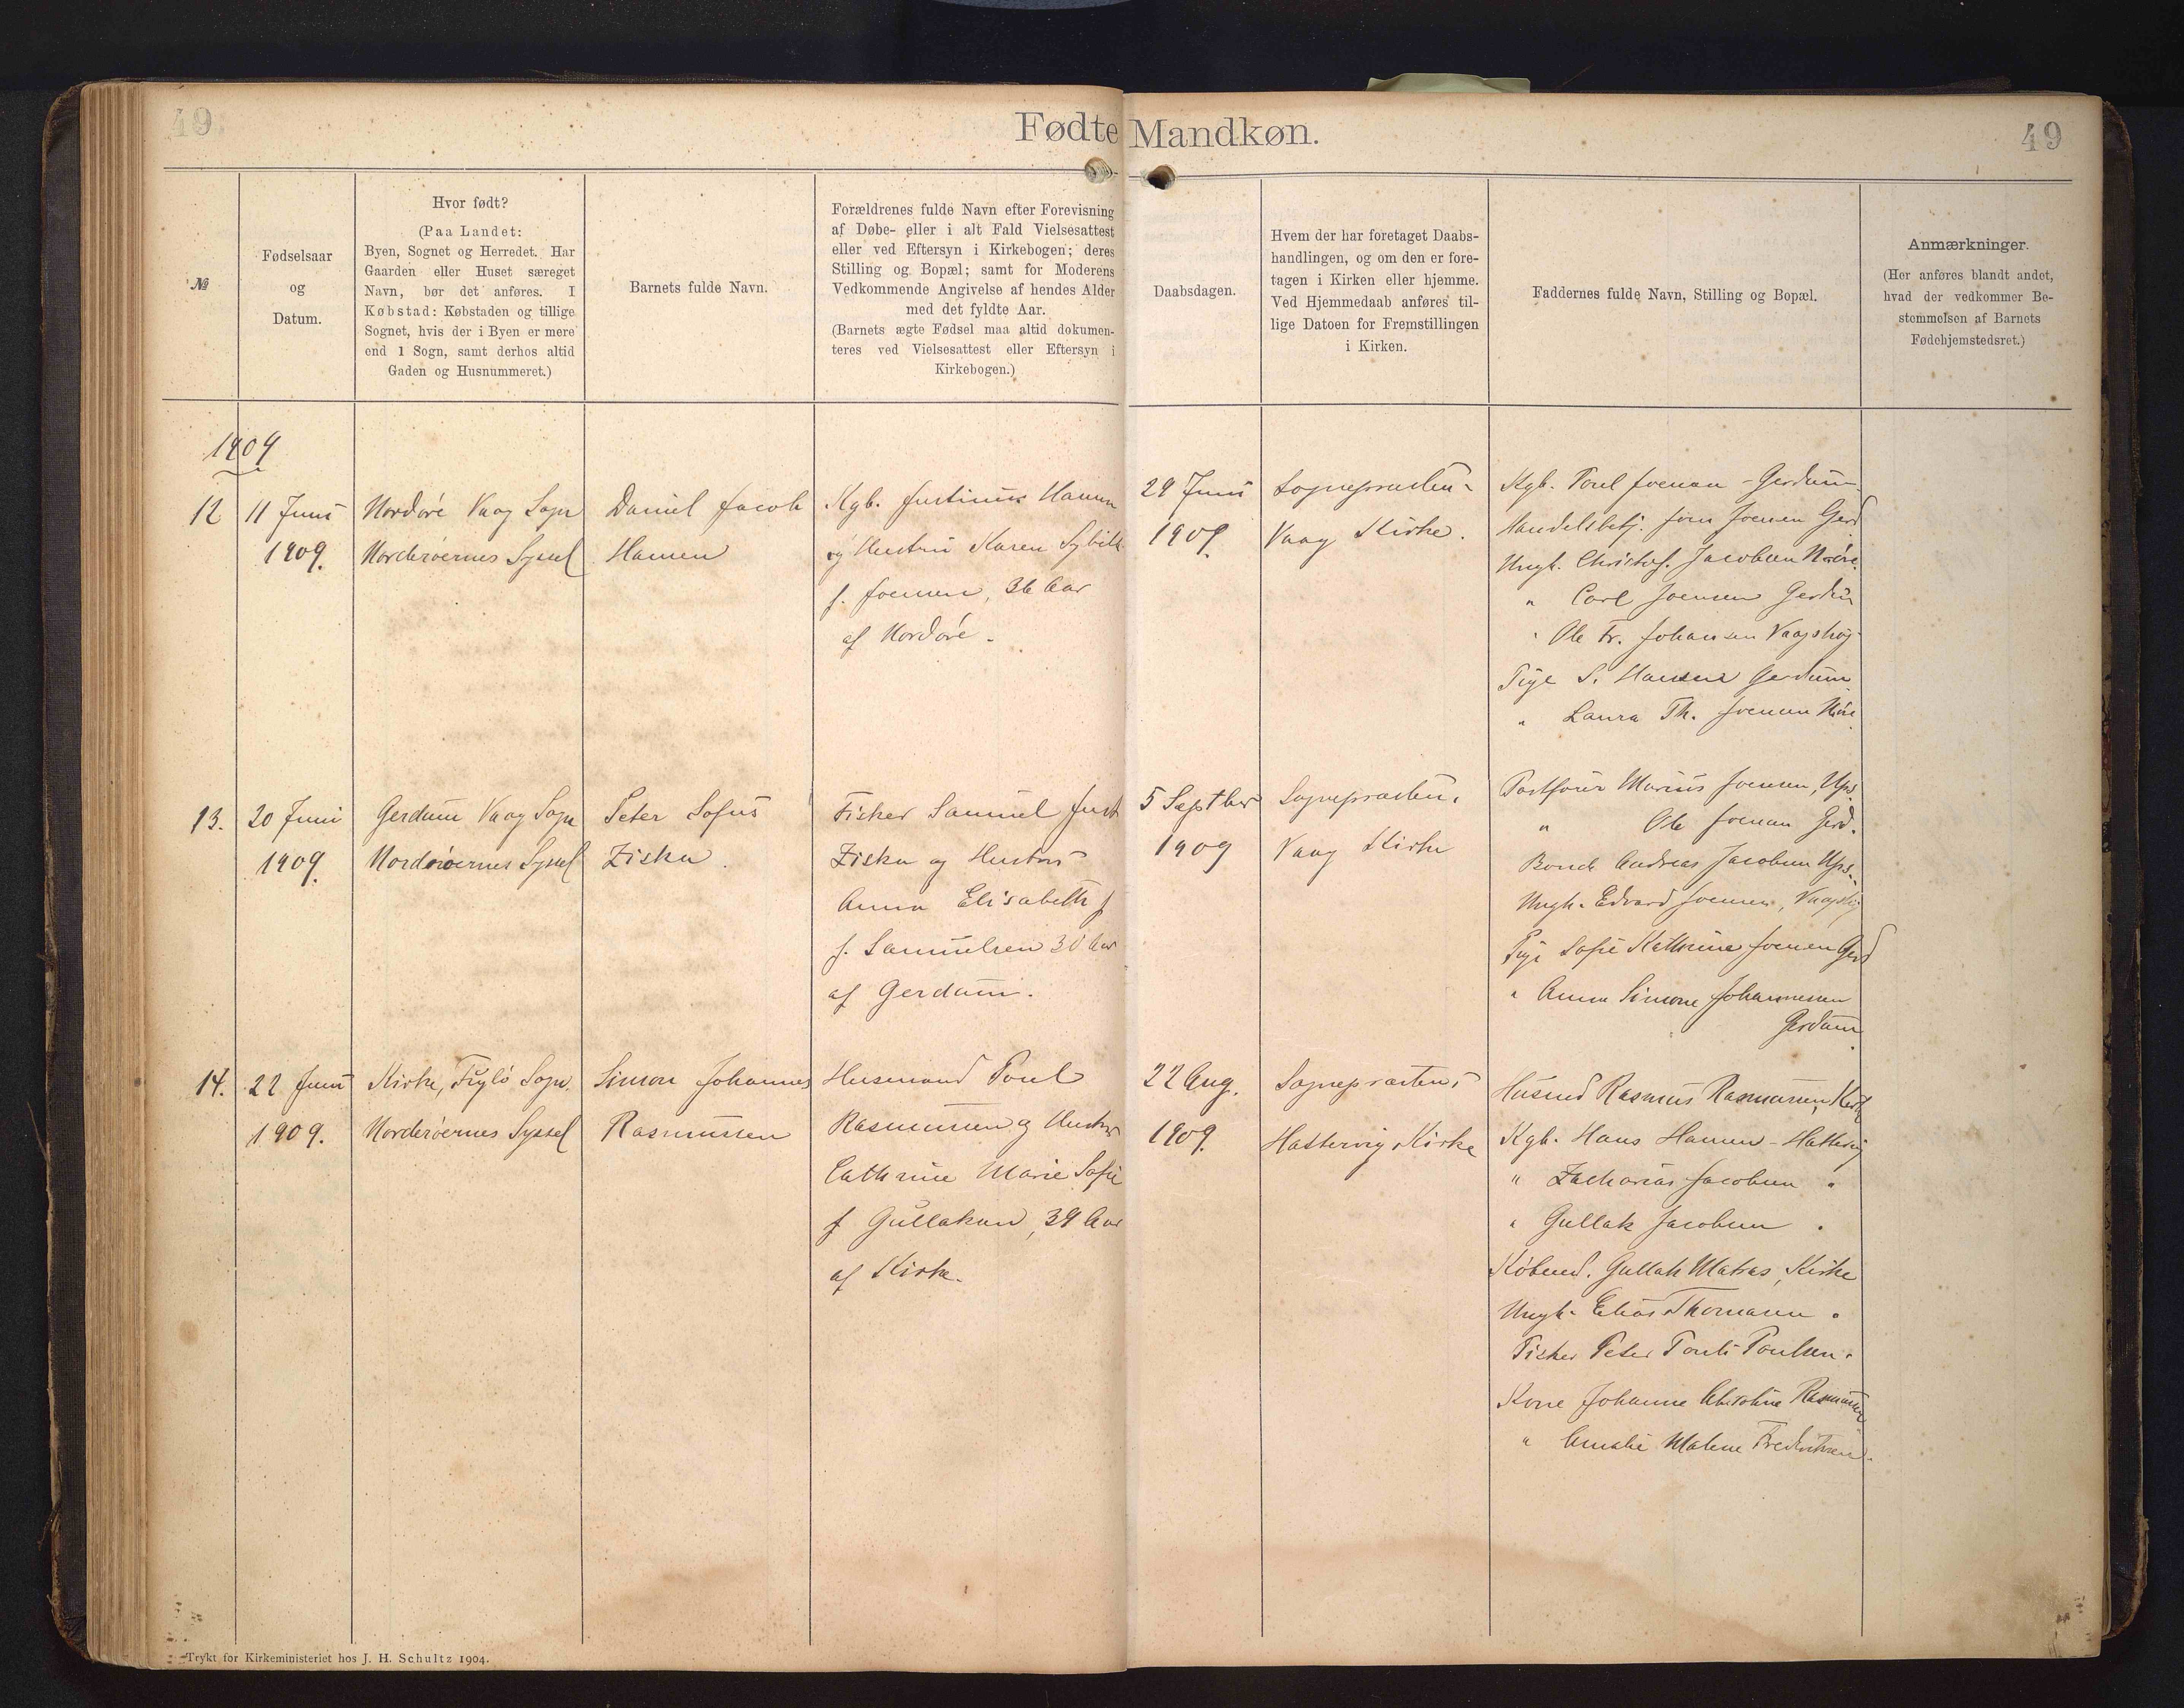 49
Fødte Mandkøn.
49
№
Fødselsaar
og
Datum.
Hvor født?
(Paa Landet:
Byen, Sognet og Herredet. Har
Gaarden eller Huset særeget
Navn, bør det anføres. I
Købstad: Købstaden og tillige
Sognet, hvis der i Byen er mere
end 1 Sogn, samt derhos altid
Gaden og Husnummeret.)
Barnets fulde Navn.
Forældrenes fulde Navn efter Forevisning
af Døbe- eller i alt Fald Vielsesattest
eller ved Eftersyn i Kirkebogen; deres
Stilling og Bopæl; samt for Moderens
Vedkommende Angivelse af hendes Alder
med det fyldte Aar.
(Barnets ægte Fødsel maa altid dokumen-
teres ved Vielsesattest eller Eftersyn i
Kirkebogen.)
Daabsdagen.
Hvem der har foretaget Daabs-
handlingen, og om den er fore-
tagen i Kirken eller hjemme.
Ved Hjemmedaab anføres til-
lige Datoen for Fremstillingen
i Kirken.
Faddernes fulde Navn, Stilling og Bopæl.
Anmærkninger.
(Her anføres blandt andet,
hvad der vedkommer Be-
stemmelsen af Barnets
Fødehjemstedsret.)
1909
12
11 Juni
1909.
Nordöre Vaag Sogn
Norderöernes Syssel
Daniel Jacob
Hansen
Kgb. Justinus Hansen
og Hustru Karen Sybille
f. Joensen, 36 Aar
af Nordöre.
29 Juni
1909.
Sognepræsten.
Vaag Kirke.
Kgb. Poul Joensen - Gerdum
Handelsbetj. Joen Joensen Gerd
Ungk. Christof. Jacobsen Nöre.
" Carl Joensen Gerdum
" Ole Fr. Johansen Vaagshög
Pige S. Hansen Gerdum
" Laura Th. Joensen Nöre
13.
20 Juni
1909.
Gerdum Vaag Sogn
Norderöernes Syssel
Peter Sofus
Ziska.
Fisker Samuel Just
Ziska og Hustru
Anna Elisabeth f
f. Samuelsen 30 Aar
af Gerdum.
5 Septbr
1909
Sognepræsten.
Vaag Kirke
Postförer Marius Joensen, Ups.
" Ole Joensen Gerd.
Bonde Andreas Jacobsen Ups.
Ungk. Edvard Joensen, Vaagshög
Pige Sofie Kathrine Joensen Gerd
" Anna Simone Johannesen
Gerdum
14.
22 Juni
1909.
Kirke, Fuglö Sogn.
Norderöernes Syssel
Simon Johannes
Rasmussen
Husmand Poul
Rasmussen og Hustru
Cathrine Marie Sofie
f Gullaksen, 39 Aar
af Kirke.
22 Aug.
1909.
Sognepræsten i
Hattervig Kirke
Husmd Rasmus Rasmussen, Kirke
Kgb. Hans Hansen - Hattervig
" Zacharias Jacobsen "
" Gullak Jacobsen "
Köbmd. Gullak Matras, Kirke
Ungk. Elias Thomasen "
Fisker Peter Pouli Poulsen "
Kone Johanne Christine Rasmussen
" Amalie Malene Fredriksen.
Trykt for Kirkeministeriet hos J. H. Schultz 1904.